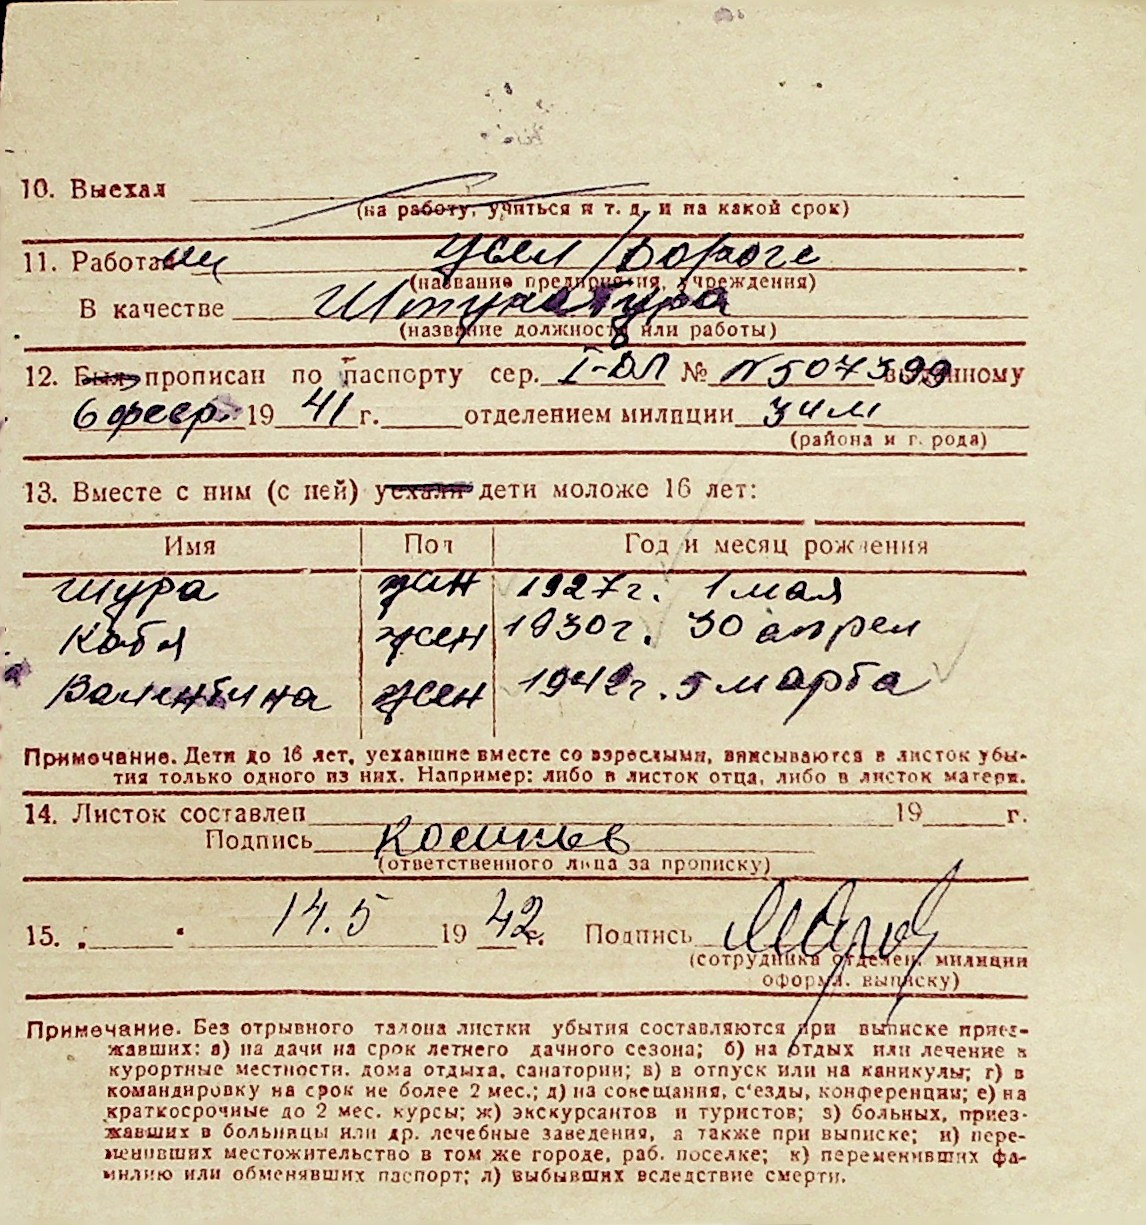 10. Выехал
(на работу, учиться и т. д. и на какой срок)
11. Работал Дороге
(название предприятия, учреждения)
В качестве Штукатура
(название должности или работы)
12. Был прописан по паспорту сер. I-ДЛ № N507399 выданному
6 февр. 19 41 г. отделением милиции
(района и г. рода)
13. Вместе с ним (с ней) уехали дети моложе 16 лет:
Имя Пол Год и месяц рождения
Шура жен 1927г. 1 мая
Катя жен 1930г. 30 апрел
Валентина жен 1942г. 5 марта
Примечание. Дети до 16 лет, уехавшие вместе со взрослыми, вписываются в листок убы-
тия только одного из них. Например: либо в листок отца, либо в листок матери.
14. Листок составлен 19 г.
Подпись
(ответственного лица за прописку)
15. 14.5 19 42 г. Подпись
(сотрудника отделен. милиции
оформл. выписку)
Примечание. Без отрывного талона листки убытия составляются при выписке приез-
жавших: а) на дачи на срок летнего дачного сезона; б) на отдых или лечение в
курортные местности, дома отдыха, санатории; в) в отпуск или на каникулы; г) в
командировку на срок не более 2 мес.; д) на совещания, с'езды, конференции; е) на
краткосрочные до 2 мес. курсы; ж) экскурсантов и туристов; з) больных, приез-
жавших в больницы или др. лечебные заведения, а также при выписке; и) пере-
менивших местожительство в том же городе, раб. поселке; к) переменивших фа-
милию или обменявших паспорт; л) выбывших вследствие смерти.